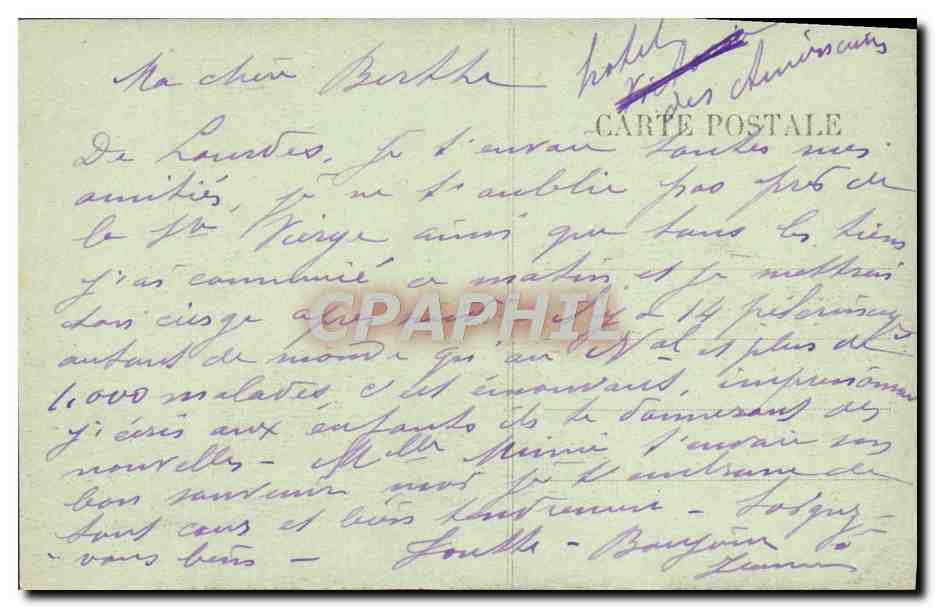 Ma chère Berthe
hotel
des Américains
CARTE POSTALE
De Lourdes, je t'envoie toutes mes
amitiés, je ne t'oublie pas près de
la Ste Vierge ainsi que tous les tiens
j'ai communié ce matin et je mettrai
ton cierge il y a 14 pélerinages
autant de monde qu'au Nal et plus de
1.000 malades, c'est émouvant, impressionnant
j'écris aux enfants ils te donneront des
nouvelles - Melle Mimie t'envoie son
bon souvenir moi je t'embrasse de
tout cœur et bien tendrement - Soignez-
-vous bien - Bonjour à
CPAPHIL